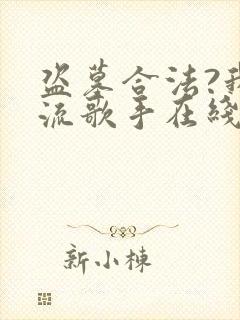 盗墓合法?我
流歌手在线
新小栋